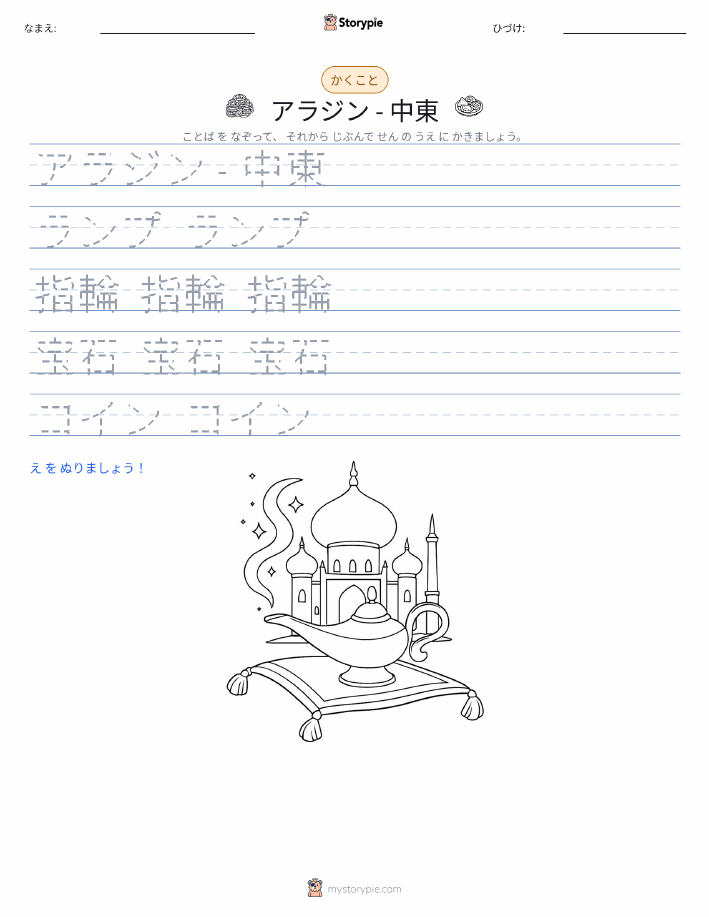 なまえ:
Storypie
ひづけ:
かくこと
アラジン - 中東
ことば を なぞって、 それから じぶんで せん の うえ に かきましょう。
アラジン - 中東
ランプ ランプ
指輪 指輪 指輪
宝石 宝石 宝石
コイン コイン
え を ぬりましょう！
mystorypie.com